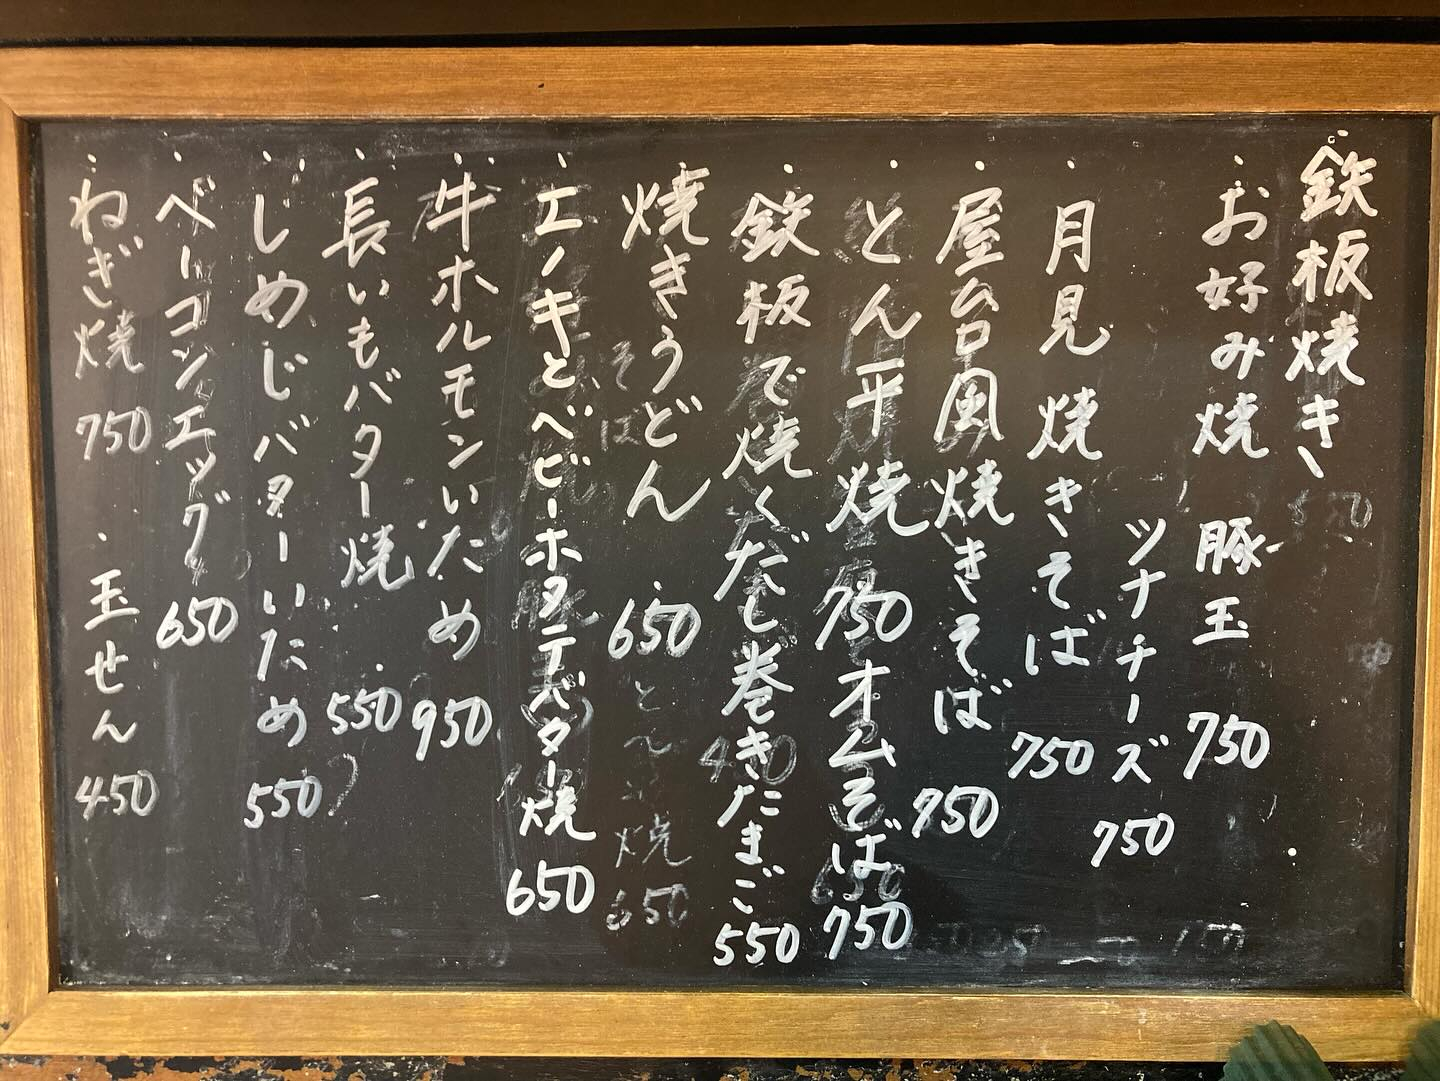 鉄板焼き
・お好み焼 豚玉 750
ツナチーズ 750
・月見焼きそば 750
・屋台風焼きそば 750
・とん平焼 750 オムそば 750
・鉄板で焼くだし巻きたまご 550
・焼きうどん 650
・エノキとベビーホタテバター焼 650
・牛ホルモンいため 950
・長いもバター焼 550
・しめじバターいため 550
・ベーコンエッグ 650
・ねぎ焼 750 ・玉せん 450